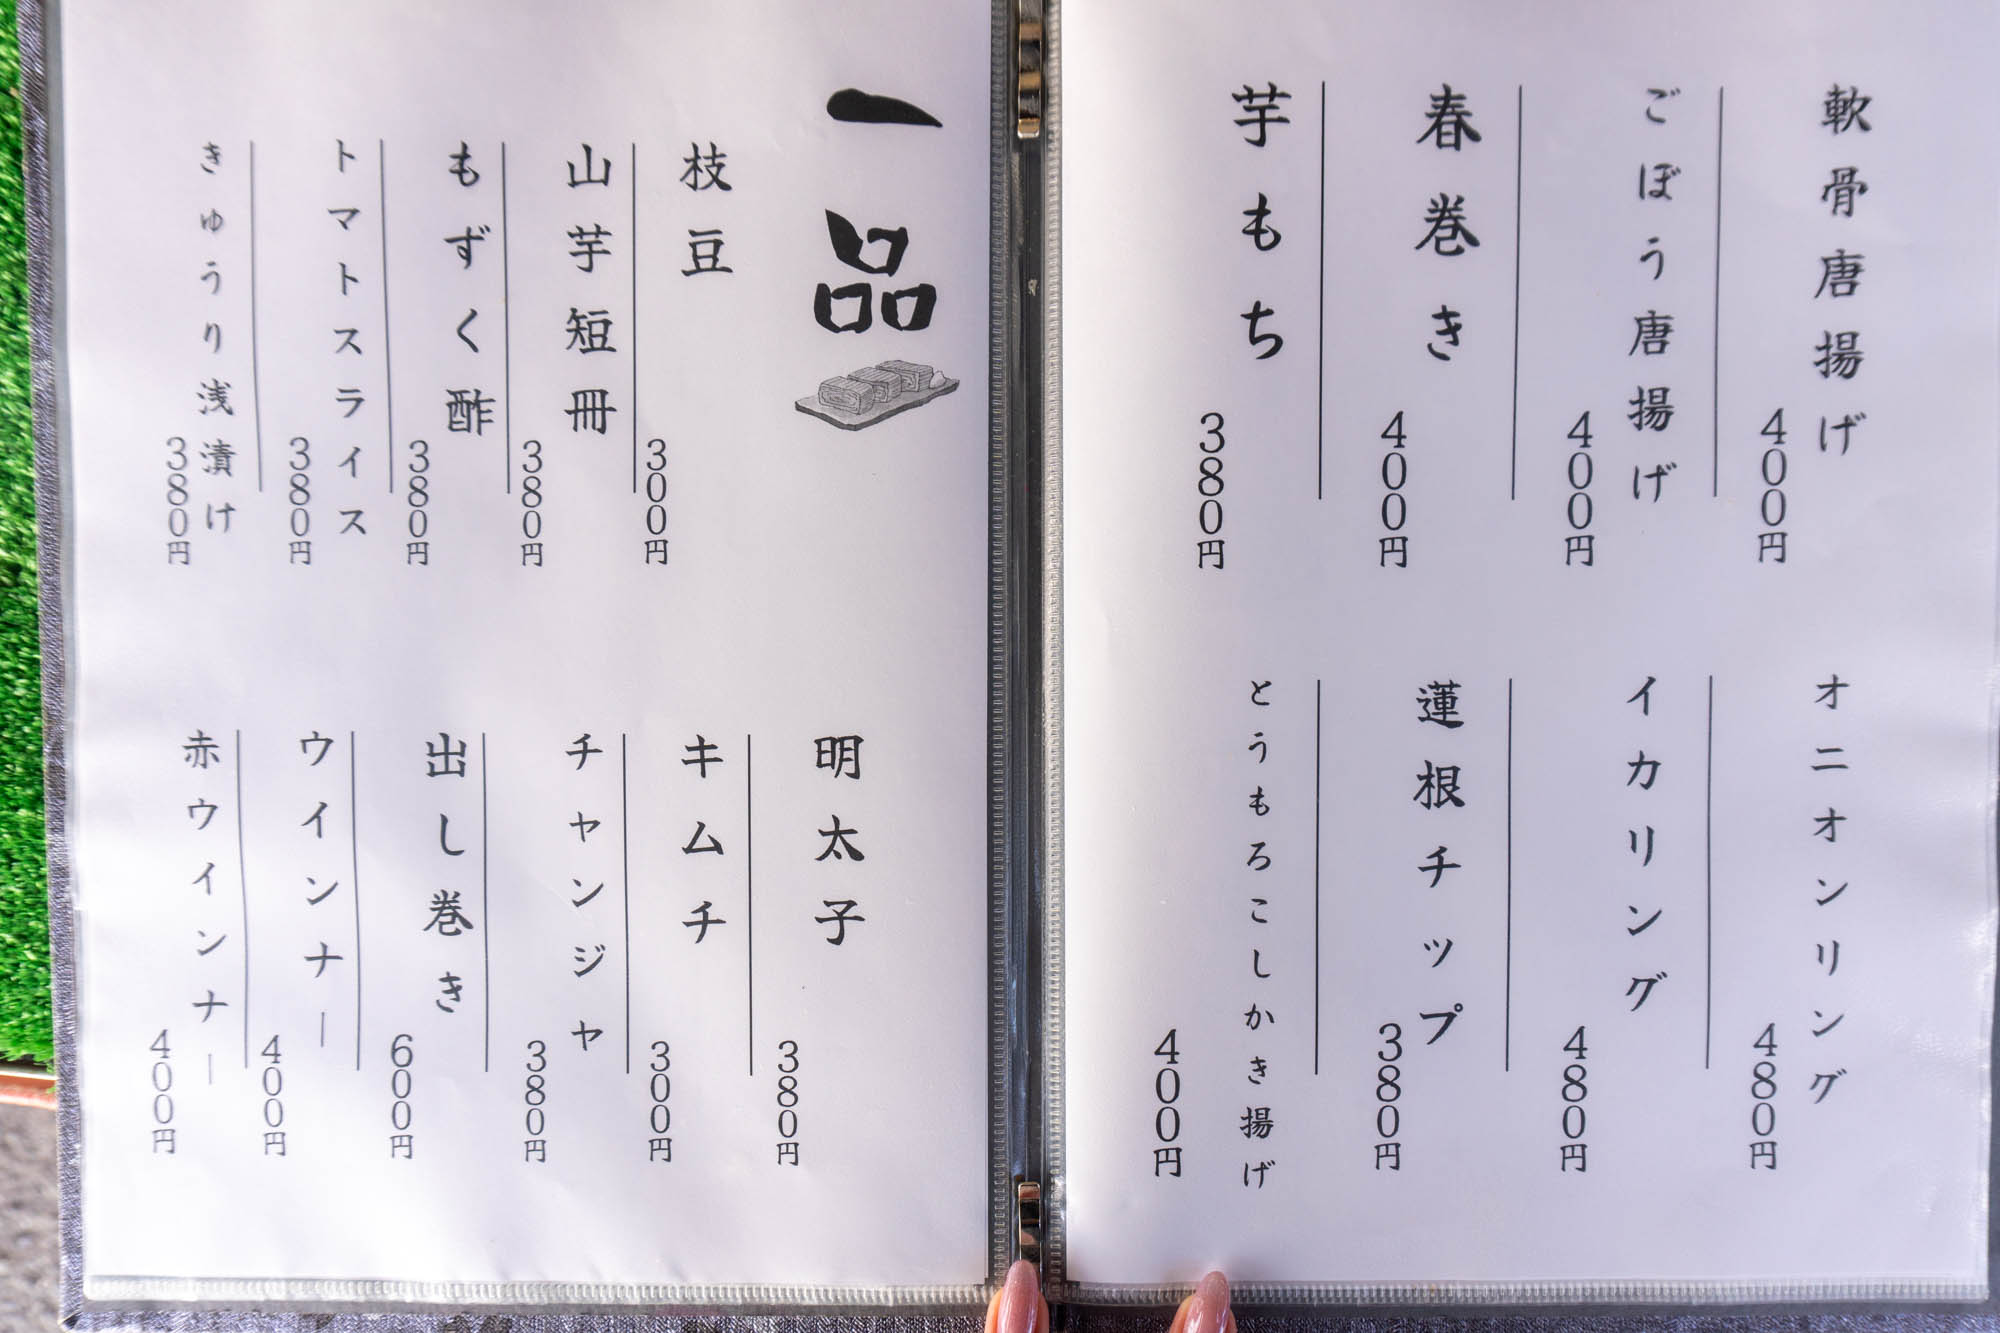 軟骨唐揚げ
400円
ごぼう唐揚げ
400円
春巻き
400円
芋もち
380円
オニオンリング
480円
イカリング
480円
蓮根チップ
380円
とうもろこしかき揚げ
400円
一品
枝豆
300円
山芋短冊
380円
もずく酢
380円
トマトスライス
380円
きゅうり浅漬け
380円
明太子
380円
キムチ
300円
チャンジャ
380円
出し巻き
600円
ウインナー
400円
赤ウインナー
400円